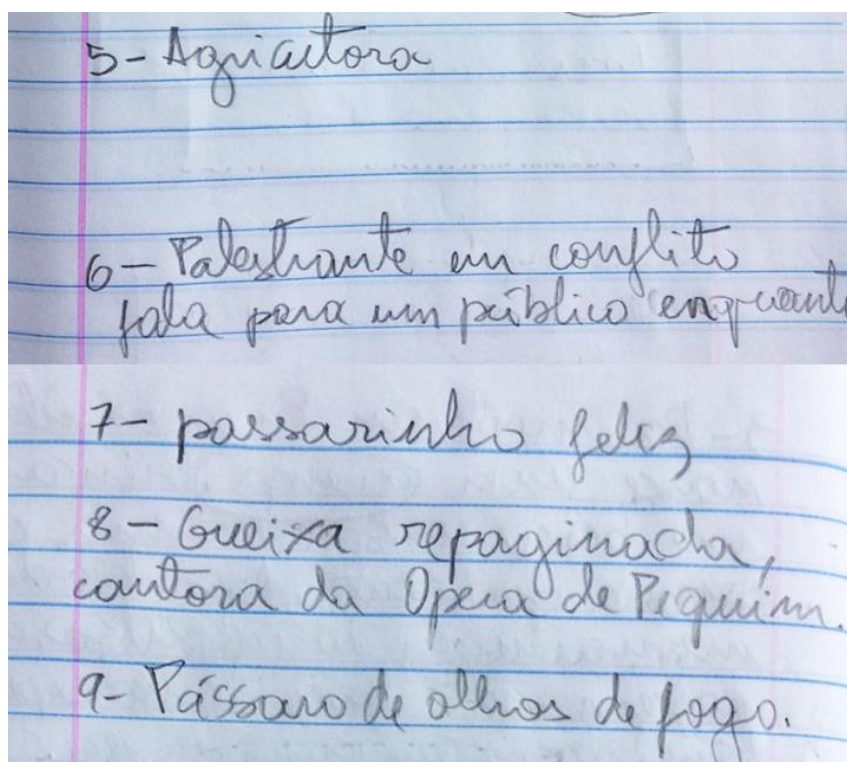 5- Agricultora
6- Palestrante em conflito
fala para um público enquant
7- passarinho feliz
8- Gueixa repaginada,
cantora da Opera de Pequim.
9- Pássaro de olhos de fogo.